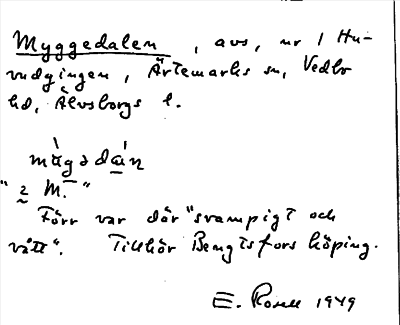 Myggedalen, avs, nr 1 Hu-
vudgingen, Ärtemarks sn, Vedbo
hd, Älvsborgs l.
"2 M."
Förr var där "svampigt och
vått". Tillhör Bengtsfors köping.
E. Rosell 1949